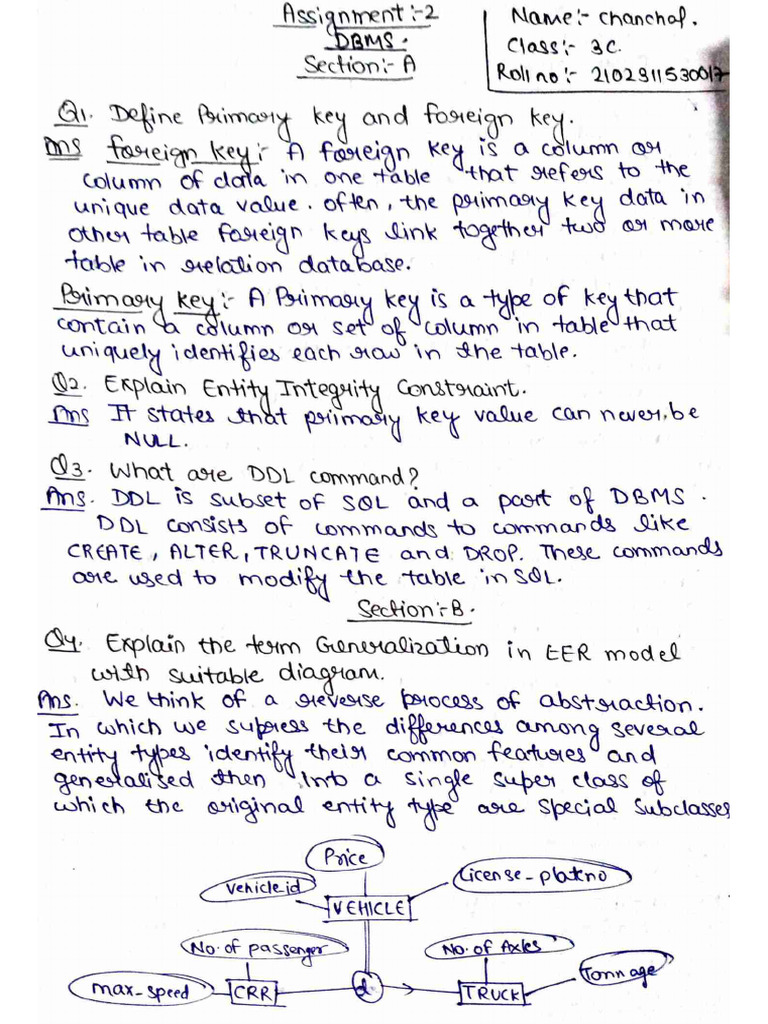 Assignment:-2
DBMS.
Section:- A
Name:- Chanchal.
Class:- 3C.
Roll no:- 2102911530017
Q1. Define Primary key and foreign key.
Ans foreign key:- A foreign key is a column or
column of data in one table that refers to the
unique data value. often, the primary key data in
other table foreign keys link together two or more
table in relation database.
Primary key:- A Primary key is a type of key that
contain a column or set of column in table that
uniquely identifies each row in the table.
Q2. Explain Entity Integrity Constraint.
Ans It states that primary key value can never be
NULL.
Q3. What are DDL command?
Ans. DDL is subset of SQL and a part of DBMS.
DDL consists of commands to commands like
CREATE, ALTER, TRUNCATE and DROP. These commands
are used to modify the table in SQL.
Section:-B.
Q4. Explain the term Generalization in EER model
with suitable diagram.
Ans. We think of a reverse process of abstraction.
In which we supress the differences among several
entity types identify their common features and
generalised then into a single super class of
which the original entity type are special subclasses
Price
Vehicle id
License-platno
VEHICLE
No. of passenger
No. of Axles
max-speed
CRR
d
TRUCK
Tonnage